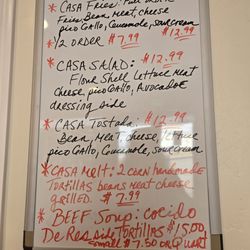 * CASA Fries:
Fries, Bean, meat, cheese
pico Gallo, Guacamole, sour cream
$12.99
* 1/2 ORDER $7.99
* CASA SALAD: $12.99
Flour Shell, Lettuce Meat
Cheese, pico Gallo, Avocado &
dressing side
* CASA Tostada: $12.99
Bean, Meat, Cheese, Lettuce
pico Gallo, Guacamole, Sour cream
* CASA Melt: 2 CORN handmade
TORTILLAS beans meat cheese
grilled. $7.99
* BEEF Soup: cocido
De Res, side TORTILLAS $15.00
small $7.50 OR